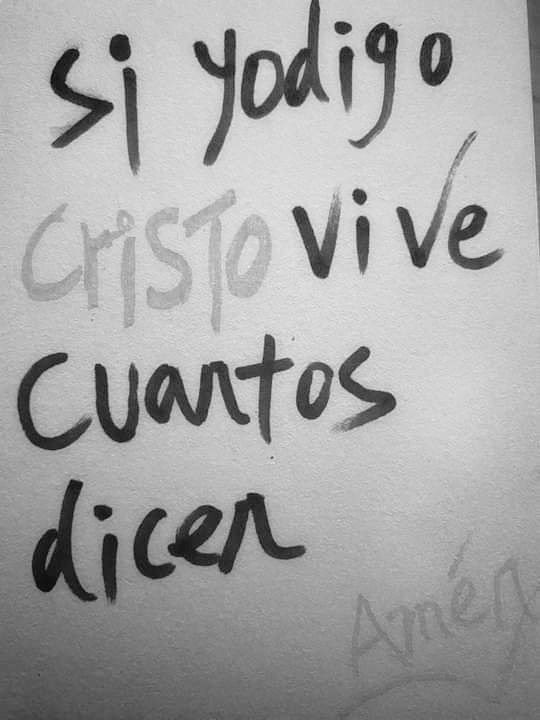 si yo digo
CriSTo vive
cuantos
dicen
Amén